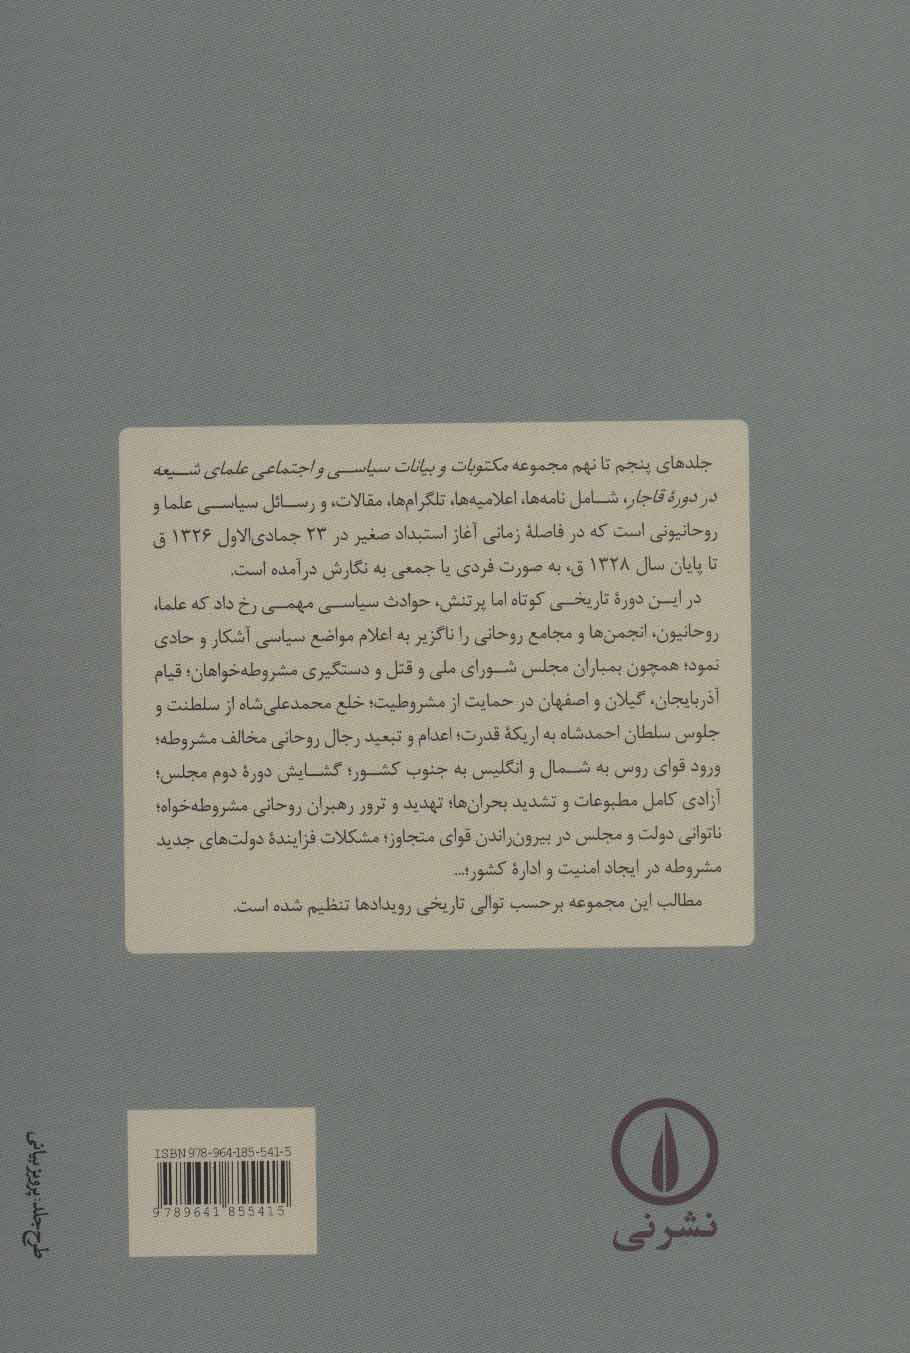 جلدهای پنجم تا نهم مجموعه مکتوبات و بیانات سیاسی و اجتماعی علمای شیعه
در دورهٔ قاجار، شامل نامه‌ها، اعلامیه‌ها، تلگرام‌ها، مقالات، و رسائل سیاسی علما و
روحانیونی است که در فاصلهٔ زمانی آغاز استبداد صغیر در ۲۳ جمادی‌الاول ۱۳۲۶ ق
تا پایان سال ۱۳۲۸ ق، به صورت فردی یا جمعی به نگارش درآمده است.
در این دورهٔ تاریخی کوتاه اما پرتنش، حوادث سیاسی مهمی رخ داد که علما،
روحانیون، انجمن‌ها و مجامع روحانی را ناگزیر به اعلام مواضع سیاسی آشکار و حادی
نمود؛ همچون بمباران مجلس شورای ملی و قتل و دستگیری مشروطه‌خواهان؛ قیام
آذربایجان، گیلان و اصفهان در حمایت از مشروطیت؛ خلع محمدعلی‌شاه از سلطنت و
جلوس سلطان احمدشاه به اریکهٔ قدرت؛ اعدام و تبعید رجال روحانی مخالف مشروطه؛
ورود قوای روس به شمال و انگلیس به جنوب کشور؛ گشایش دورهٔ دوم مجلس؛
آزادی کامل مطبوعات و تشدید بحران‌ها؛ تهدید و ترور رهبران روحانی مشروطه‌خواه؛
ناتوانی دولت و مجلس در بیرون‌راندن قوای متجاوز؛ مشکلات فزایندهٔ دولت‌های جدید
مشروطه در ایجاد امنیت و ادارهٔ کشور؛...
مطالب این مجموعه برحسب توالی تاریخی رویدادها تنظیم شده است.
ISBN 978-964-185-541-5
9 789641 855415
نشرنی
طرح جلد: پرویز بیانی